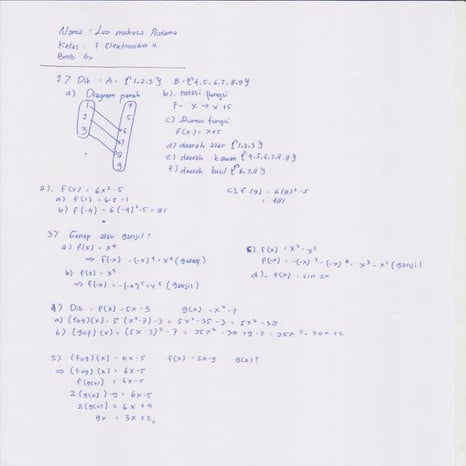 Nama : Leo mahesa Pratama
Kelas : 1 Elektronika A
1) Dik : A = {1,2,3} B = {4,5,6,7,8,9}
a) Diagram panah
1 2 3
4 5 6 7 8 9
b). notasi fungsi
F = x → x+5
c) Rumus fungsi
f(x) = x+5
d) daerah asal {1,2,3}
e) daerah kawan {4,5,6,7,8,9}
f) daerah hasil {6,7,8}
2). f(x) = 6x²-5
a) f(1) = 6-5 = 1
b) f(-4) = 6(-4)²-5 = 91
c) f(9) = 6(9)²-5
= 481
3) Genap atau ganjil?
a) f(x) = x⁴
⇒ f(-x) = (-x)⁴ = x⁴ (genap)
b) f(x) = x⁵
⇒ f(-x) = (-x)⁵ = x⁵ (ganjil)
f(x) = x³-x²
f(-x) = -(-x)³-(-x)² = x³-x² (ganjil)
d). f(x) = sin 2x
4) Dik : f(x) = 5x-3 g(x) = x²-7
a) (fog)(x) = 5(x²-7)-3 = 5x²-35-3 = 5x²-38
b) (gof)(x) = (5x-3)²-7 = 25x²-30+9-7 = 25x²-30x+2
5) (fog)(x) = 6x-5 f(x) = 2x-9 g(x)?
⇒ (fog)(x) = 6x-5
f(g(x)) = 6x-5
2(g(x))-9 = 6x-5
2(g(x)) = 6x+4
gx = 3x+2